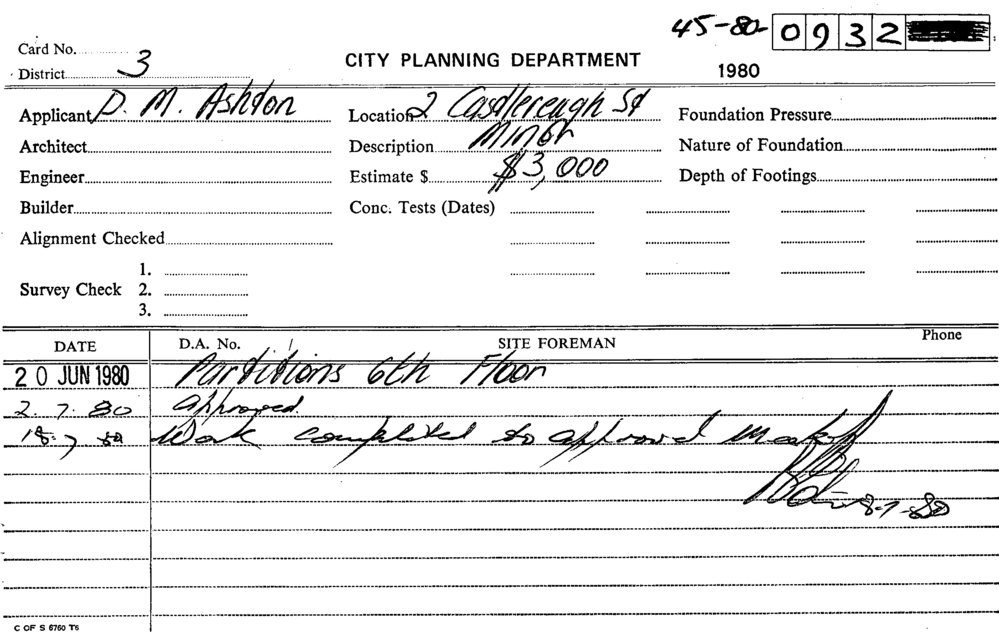 45-80- 0932
Card No.
District 3
CITY PLANNING DEPARTMENT
1980
Applicant D. M. Ashton Location 2 Castlereagh St Foundation Pressure
Architect Description Minor Nature of Foundation
Engineer Estimate $ $3,000 Depth of Footings
Builder Conc. Tests (Dates)
Alignment Checked
1.
Survey Check 2.
3.
DATE D.A. No. SITE FOREMAN Phone
20 JUN 1980 Partitions 6th Floor
2.7.80 Approved.
18.7.80 Work completed to approval
8-7-80
C OF S 6760 T6